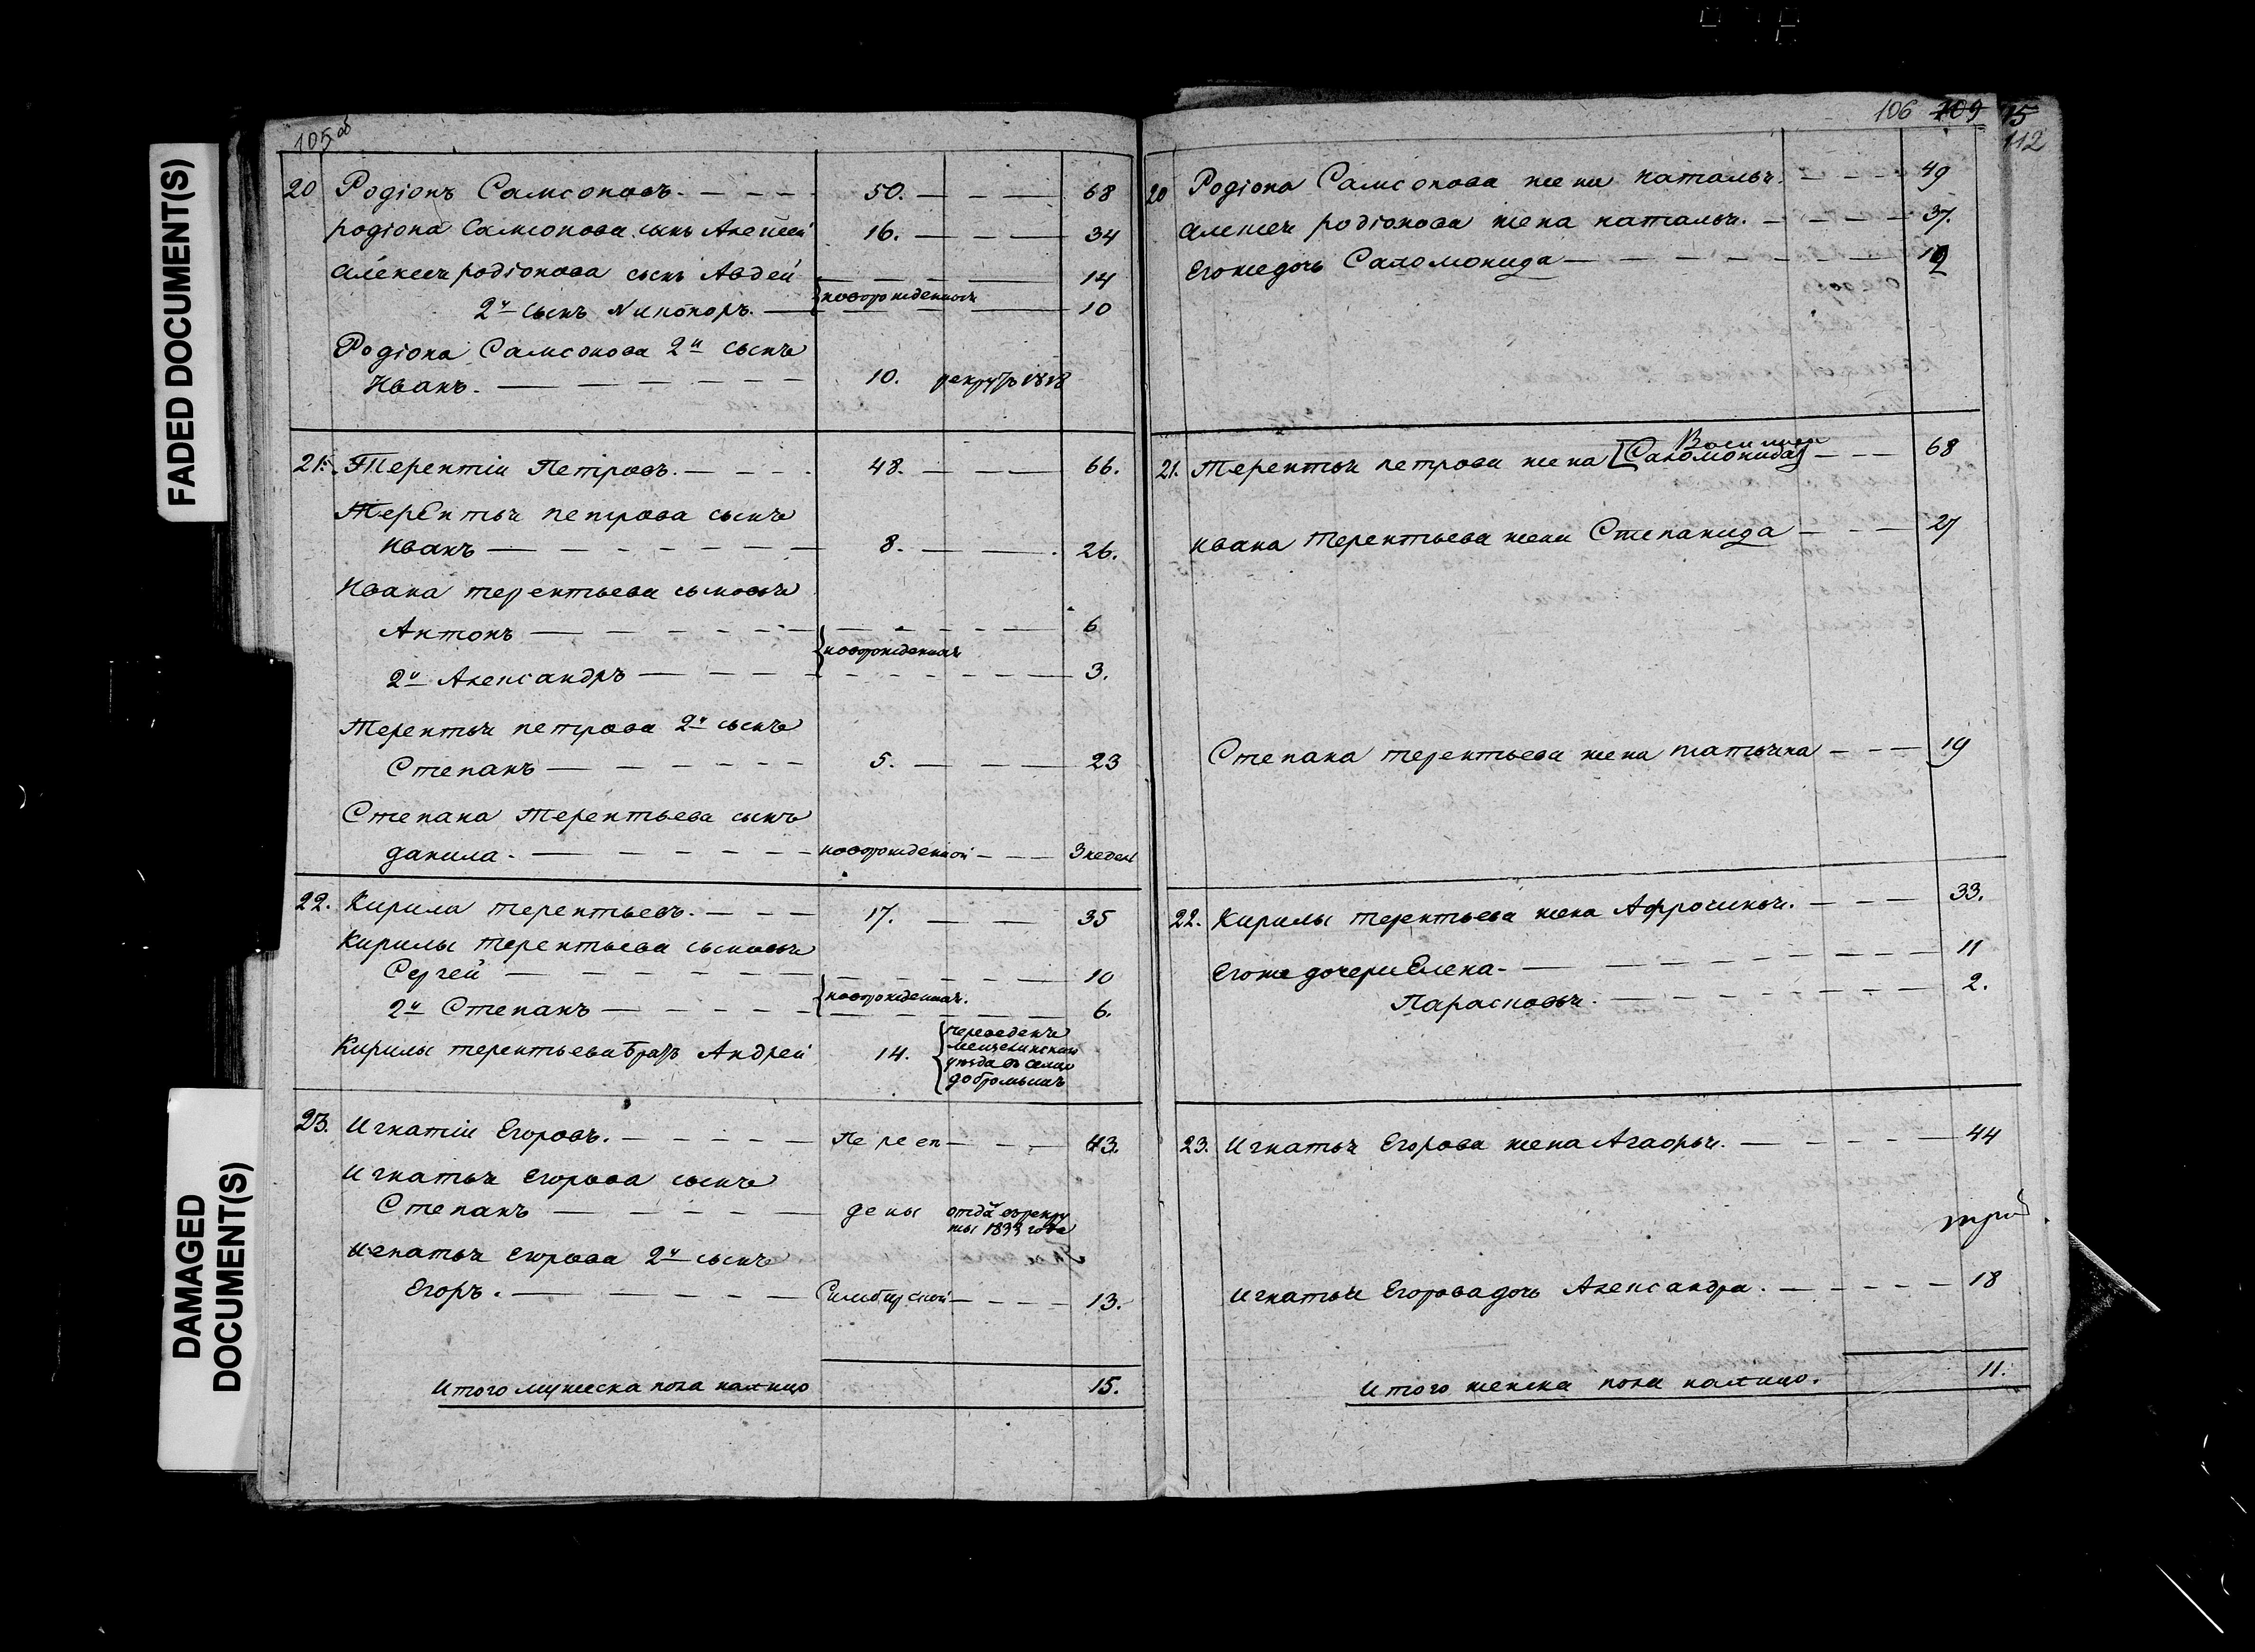 FADED DOCUMENT(S)
DAMAGED DOCUMENT(S)
105об
20 Родіонъ Самсоновъ. 50. 68
родіона Самсонова сынъ Алексей 16. 34
Алексея родіонова сынъ Авдей 14
2й сынъ Никоноръ. новорожденныя 10
Родіона Самсонова 2й сынъ
Иванъ. 10. рекрутъ 1818
21. Терентіи Петровъ. 48. 66.
Терентья петрова сынъ
Иванъ 8. 26.
Ивана терентьева сыновья
Антонъ 6
новорожденныя
2й Александръ 3.
Терентья петрова 2й сынъ
Степанъ 5. 23
Степана Терентьева сынъ
данила. новорожденной 3 недель
22. Кирила терентьевъ. 17. 35
Кирилы терентьева сыновья
Сергей 10
2й Степанъ новорожденныя. 6.
Кирилы терентьева братъ Андрей 14. переведенъ
мензелинскаго
уезда въ село
23. Игнатіи Егоровъ. Переп 43.
Игнатья Егорова сынъ
Степанъ дены отданъ в рекру
ты 1833 года
Игнатья Егорова 2й сынъ
Егоръ. Симбирской 13.
Итого мужеска пола налицо 15.
106 109 15
112
20 Родіона Самсонова жена наталья. 49
алексея родіонова жена наталья. 37.
Его же дочь Саломонида 12
21. Терентья петрова жена [Саломонида] Василиса 68
Ивана терентьева жена Степанида 27
Степана терентьева жена татьяна 19
22. Кирилы терентьева жена Афросинья. 33.
Его же дочери Елена. 11
Парасковья. 2.
23. Игнатья Егорова жена Агафья. 44
Игнатья Егорова дочь Александра. 18
Итого женска пола налицо. 11.